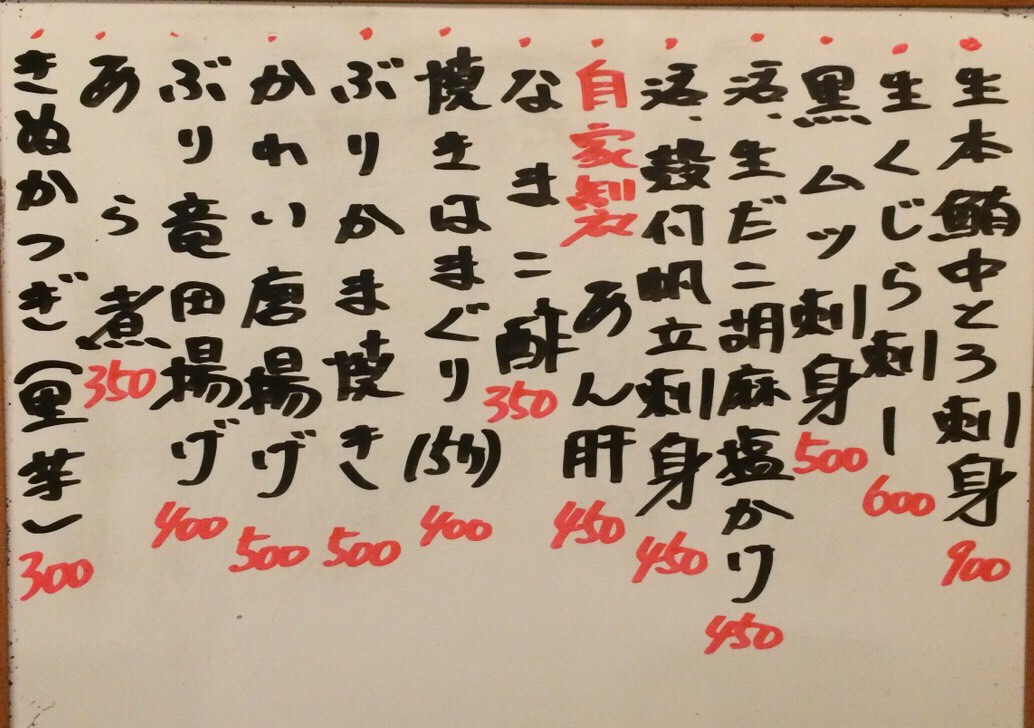 生本鮪中とろ刺身 900
生くじら刺し 600
黒ムツ刺身 500
活生だこ胡麻塩かけ 450
活殻付帆立刺身 450
自家製あん肝 450
なまこ酢 350
焼きはまぐり(5ケ) 400
ぶりかま焼き 500
かれい唐揚げ 500
ぶり竜田揚げ 400
あら煮 350
きぬかつぎ(里芋) 300